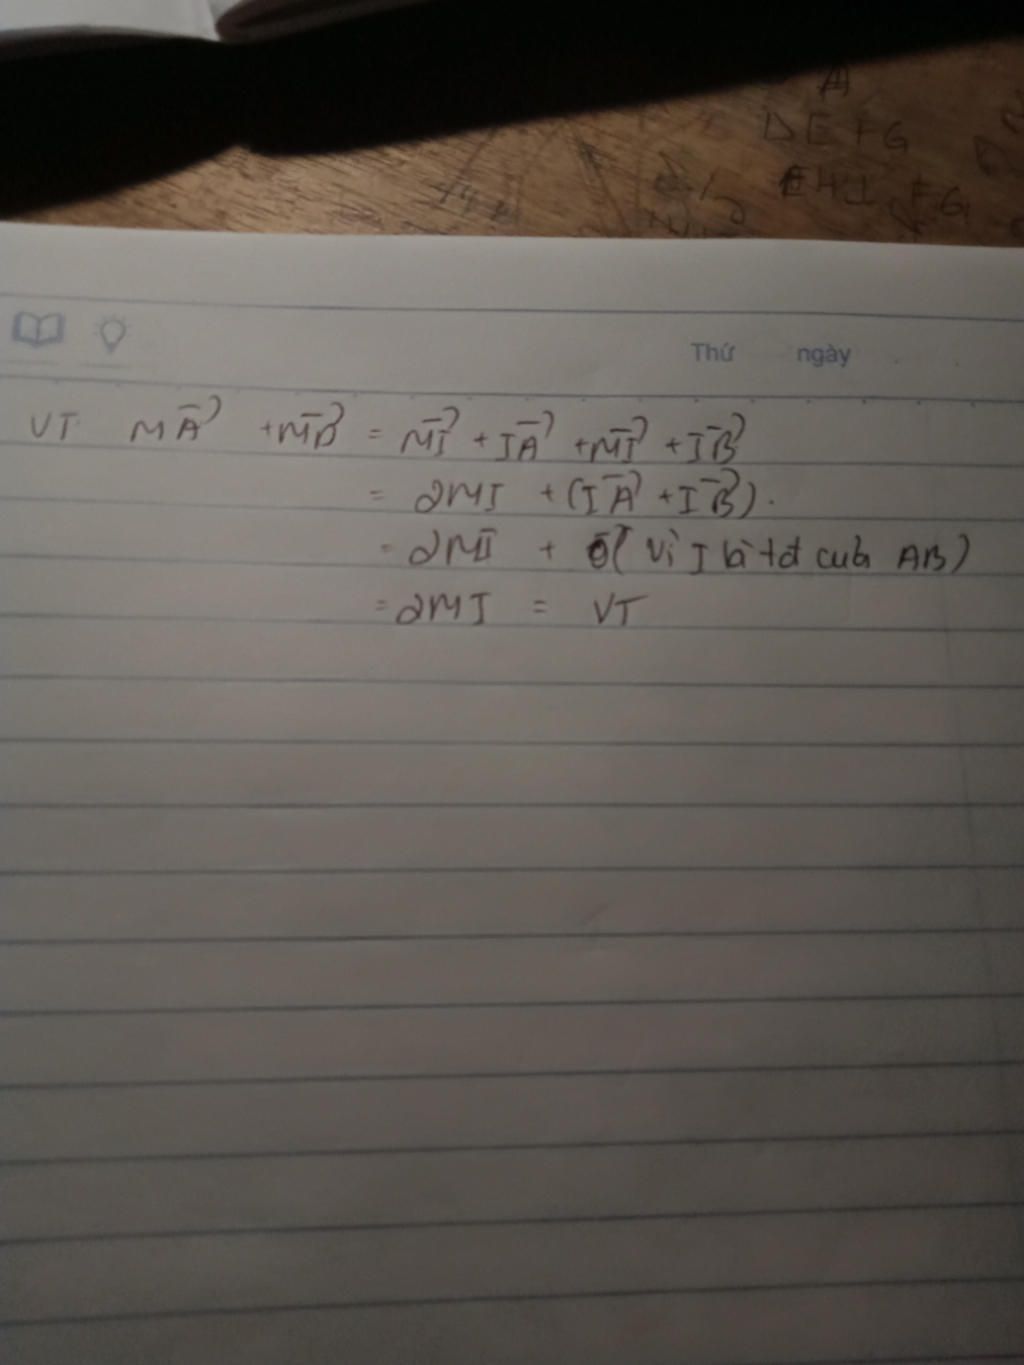 A
D E F G
E H I F G
Thứ ngày
VT MA⃗ + MB⃗ = MI⃗ + IA⃗ + MI⃗ + IB⃗
= 2MI + (IA⃗ + IB⃗).
= 2MI + 0⃗ ( vì I là tđ của AB)
= 2MI = VT